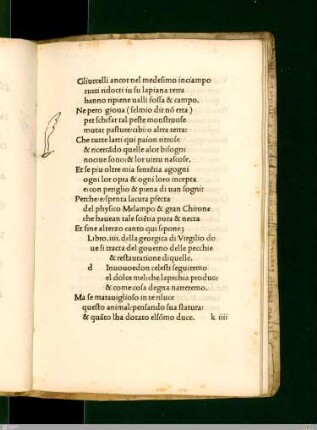 Gliuccelli ancor nel medesimo inciampo
tutti ridocti iu su lapiana terra
hanno ripiene ualli fossa & campo.
Ne pero gioua (sel mio dir nō erra)
per schifar tal peste monstruose
mutar pasture/cibi/o altra terra:
Che tutte larti qui paion ritrose
& ricercādo quelle alor bisogni
nociue sono: & lor uirtu nascose.
Et se piu oltre mia sentētia agogni
ogni lor opra & ogni loro incepta
e con periglio & piena di uan sogni:
Perche spenta lacura pfecta
del physico Melampo & gran Chirone
che hauean tale sciētia pura & necta
Et fine alterzo canto qui si pone
Libro .iiii. della georgica di Virgilio do
ue si tracta del gouerno delle pecchie
& restauratione di quelle.
d Inuouo edon celesti seguiremo
el dolce mel: che lapechia produce
& come cosa degna narreremo.
Ma se marauiglioso in te riluce
questo animal/pensando sua statura:
& quāto lha dotato el sōmo duce.
k iiii